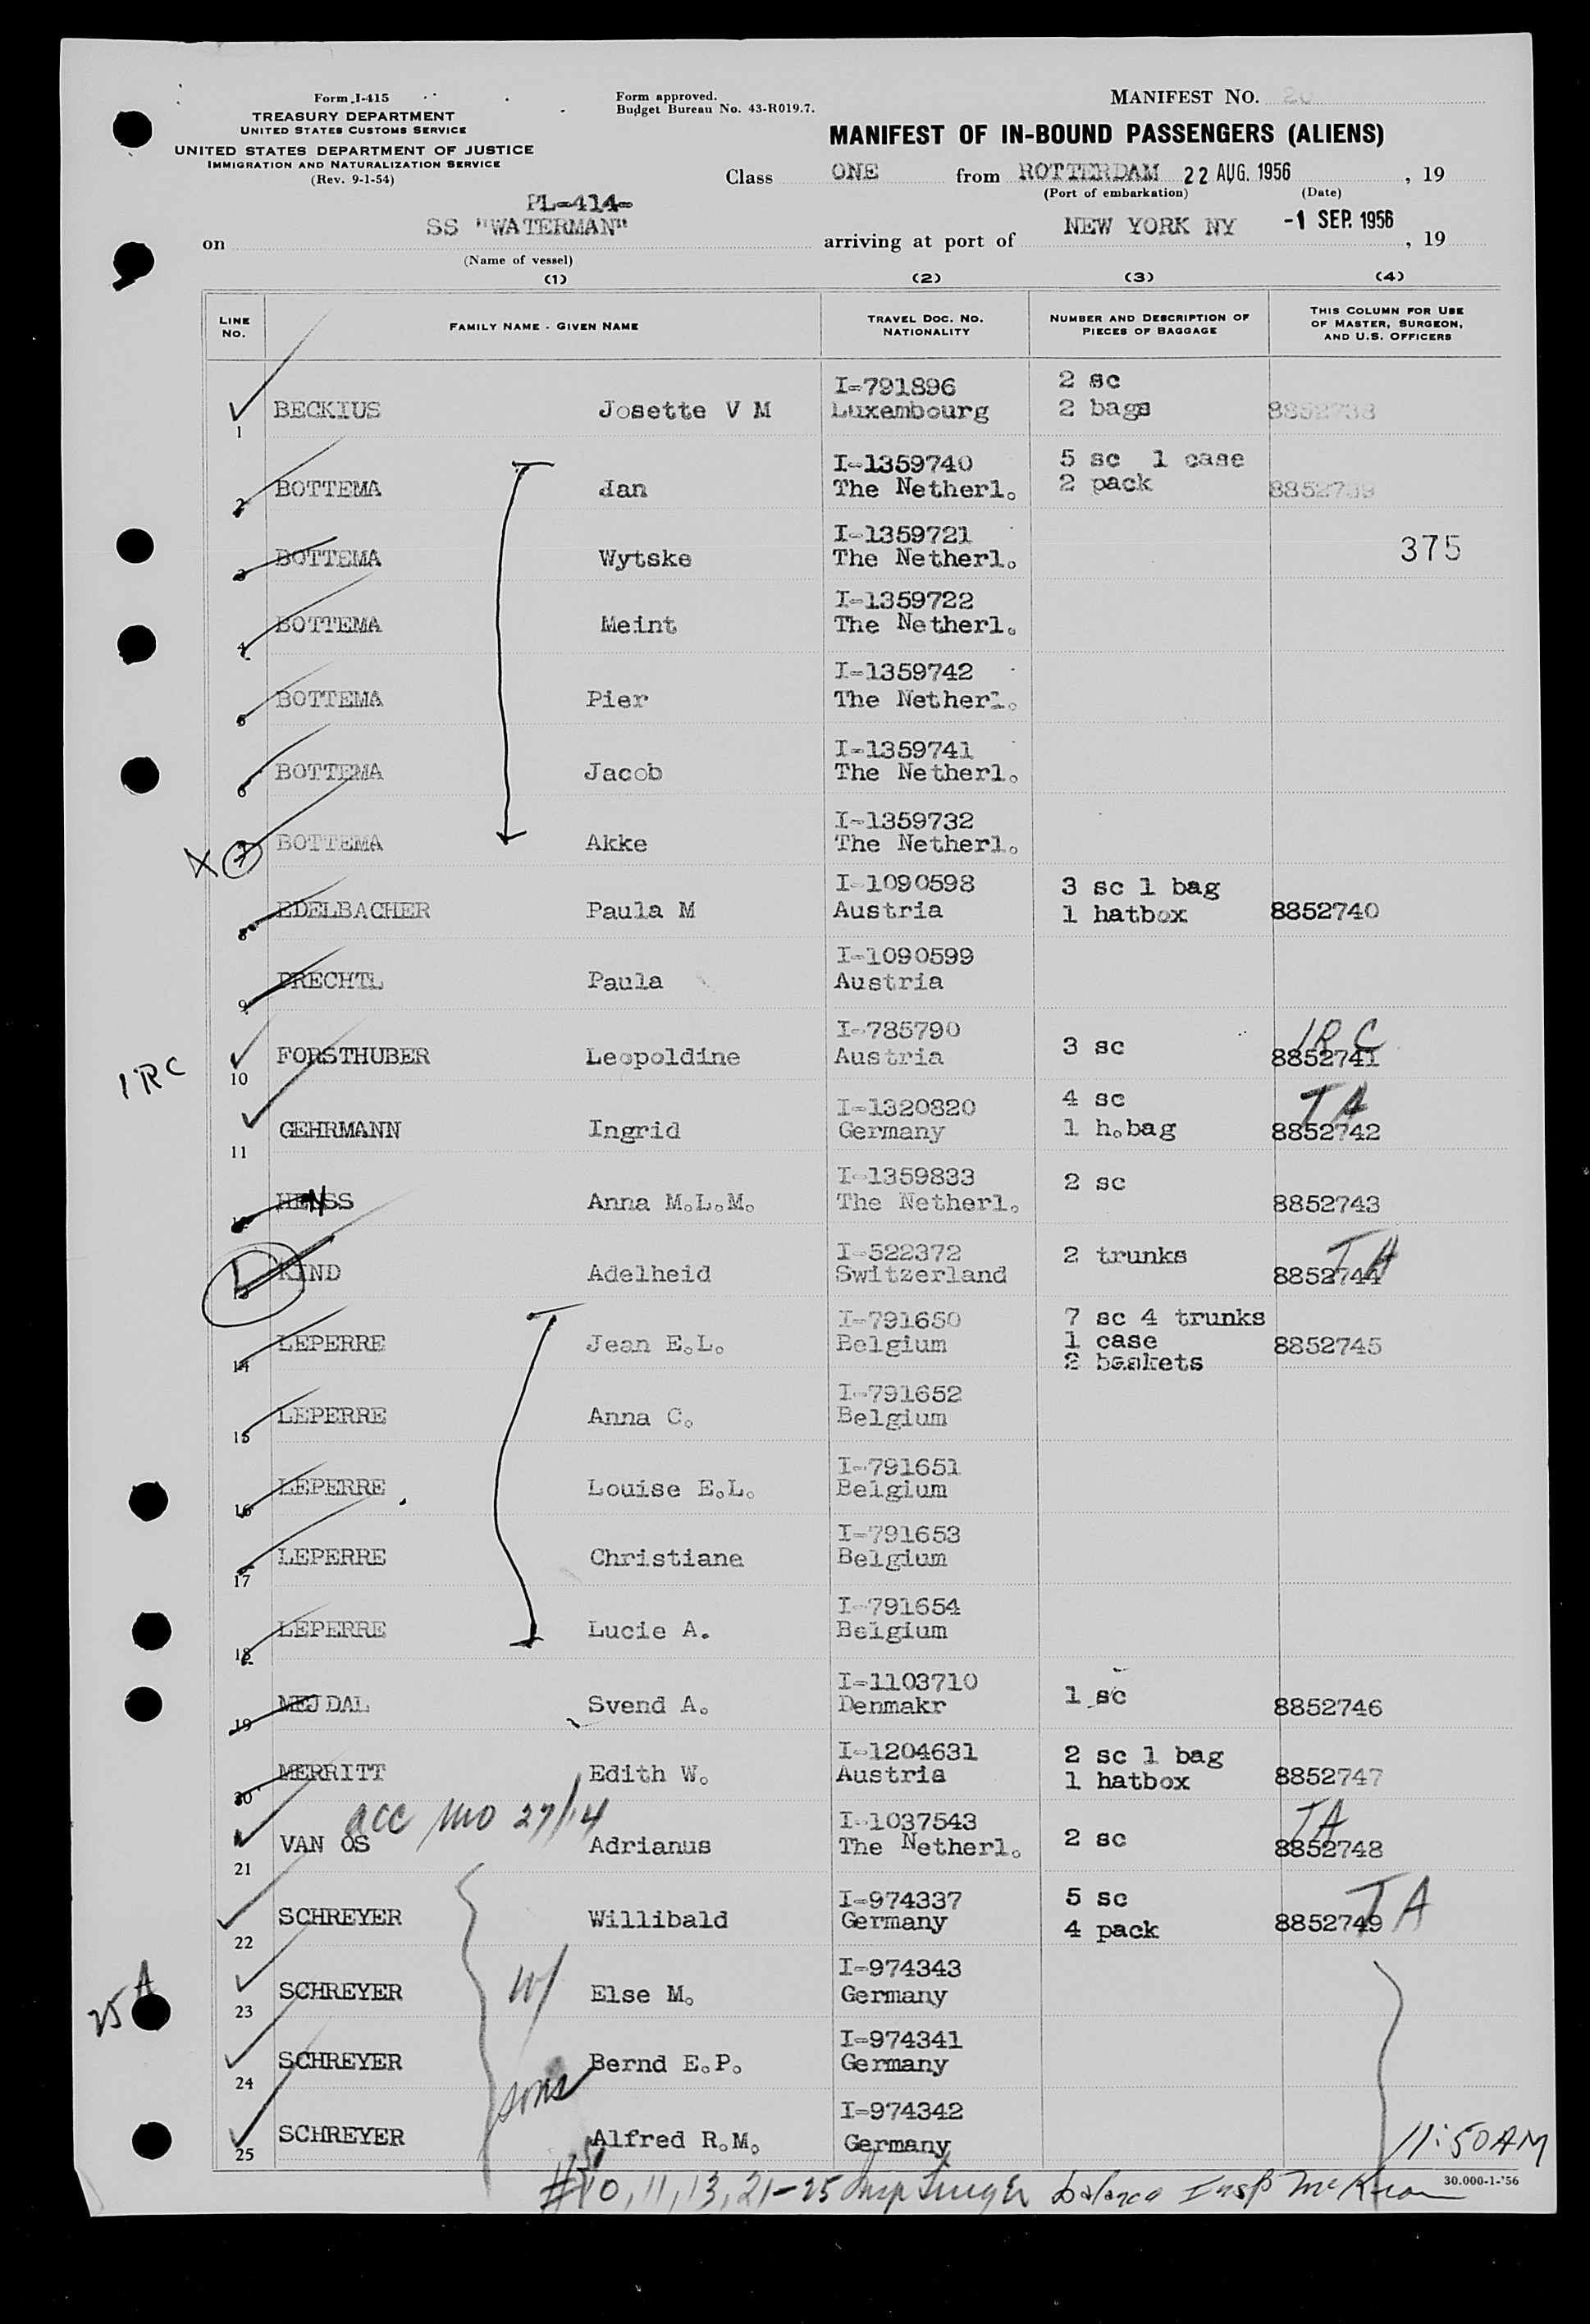 Form I-415
TREASURY DEPARTMENT
UNITED STATES CUSTOMS SERVICE
UNITED STATES DEPARTMENT OF JUSTICE
IMMIGRATION AND NATURALIZATION SERVICE
(Rev. 9-1-54)
Form approved.
Budget Bureau No. 43-R019.7.
MANIFEST NO. 20
MANIFEST OF IN-BOUND PASSENGERS (ALIENS)
Class ONE from ROTTERDAM 22 AUG. 1956, 19
(Port of embarkation) (Date)
PL-414-
on SS "WATERMAN" arriving at port of NEW YORK NY -1 SEP. 1956, 19
(Name of vessel)
(1) (2) (3) (4)
LINE NO. FAMILY NAME - GIVEN NAME TRAVEL DOC. NO. NATIONALITY NUMBER AND DESCRIPTION OF PIECES OF BAGGAGE THIS COLUMN FOR USE OF MASTER, SURGEON, AND U.S. OFFICERS
I-791896 2 sc
1 BECKIUS Josette V M Luxembourg 2 bags 8852738
I-1359740 5 sc 1 case
2 BOTTEMA Jan The Netherl. 2 pack 8852739
I-1359721
3 BOTTEMA Wytske The Netherl. 375
I-1359722
4 BOTTEMA Meint The Netherl.
I-1359742
5 BOTTEMA Pier The Netherl.
I-1359741
6 BOTTEMA Jacob The Netherl.
I-1359732
X 7 BOTTEMA Akke The Netherl.
I-1090598 3 sc 1 bag
8 EDELBACHER Paula M Austria 1 hatbox 8852740
I-1090599
9 PRECHTL Paula Austria
I-785790 IRC
IRC 10 FORSTHUBER Leopoldine Austria 3 sc 8852741
I-1320820 4 sc TA
11 GEHRMANN Ingrid Germany 1 h.bag 8852742
I-1359833 2 sc
12 HENSS Anna M.L.M. The Netherl. 8852743
I-522372 2 trunks TA
13 KIND Adelheid Switzerland 8852744
I-791650 7 sc 4 trunks
14 LEPERRE Jean E.L. Belgium 1 case 8852745
2 baskets
I-791652
15 LEPERRE Anna C. Belgium
I-791651
16 LEPERRE Louise E.L. Belgium
I-791653
17 LEPERRE Christiane Belgium
I-791654
18 LEPERRE Lucie A. Belgium
I-1103710 1 sc
19 MEJDAL Svend A. Denmakr 8852746
I-1204631 2 sc 1 bag
20 MERRITT Edith W. Austria 1 hatbox 8852747
acc 27/14 I-1037543 TA
21 VAN OS Adrianus The Netherl. 2 sc 8852748
I-974337 5 sc TA
22 SCHREYER Willibald Germany 4 pack 8852749
I-974343
25 A 23 SCHREYER W/ Else M. Germany
I-974341
24 SCHREYER Bernd E.P. Germany
sons
I-974342
25 SCHREYER Alfred R.M. Germany 11:50 AM
#10, 11, 13, 21-25 Insp balance Insp
30.000-1-'56